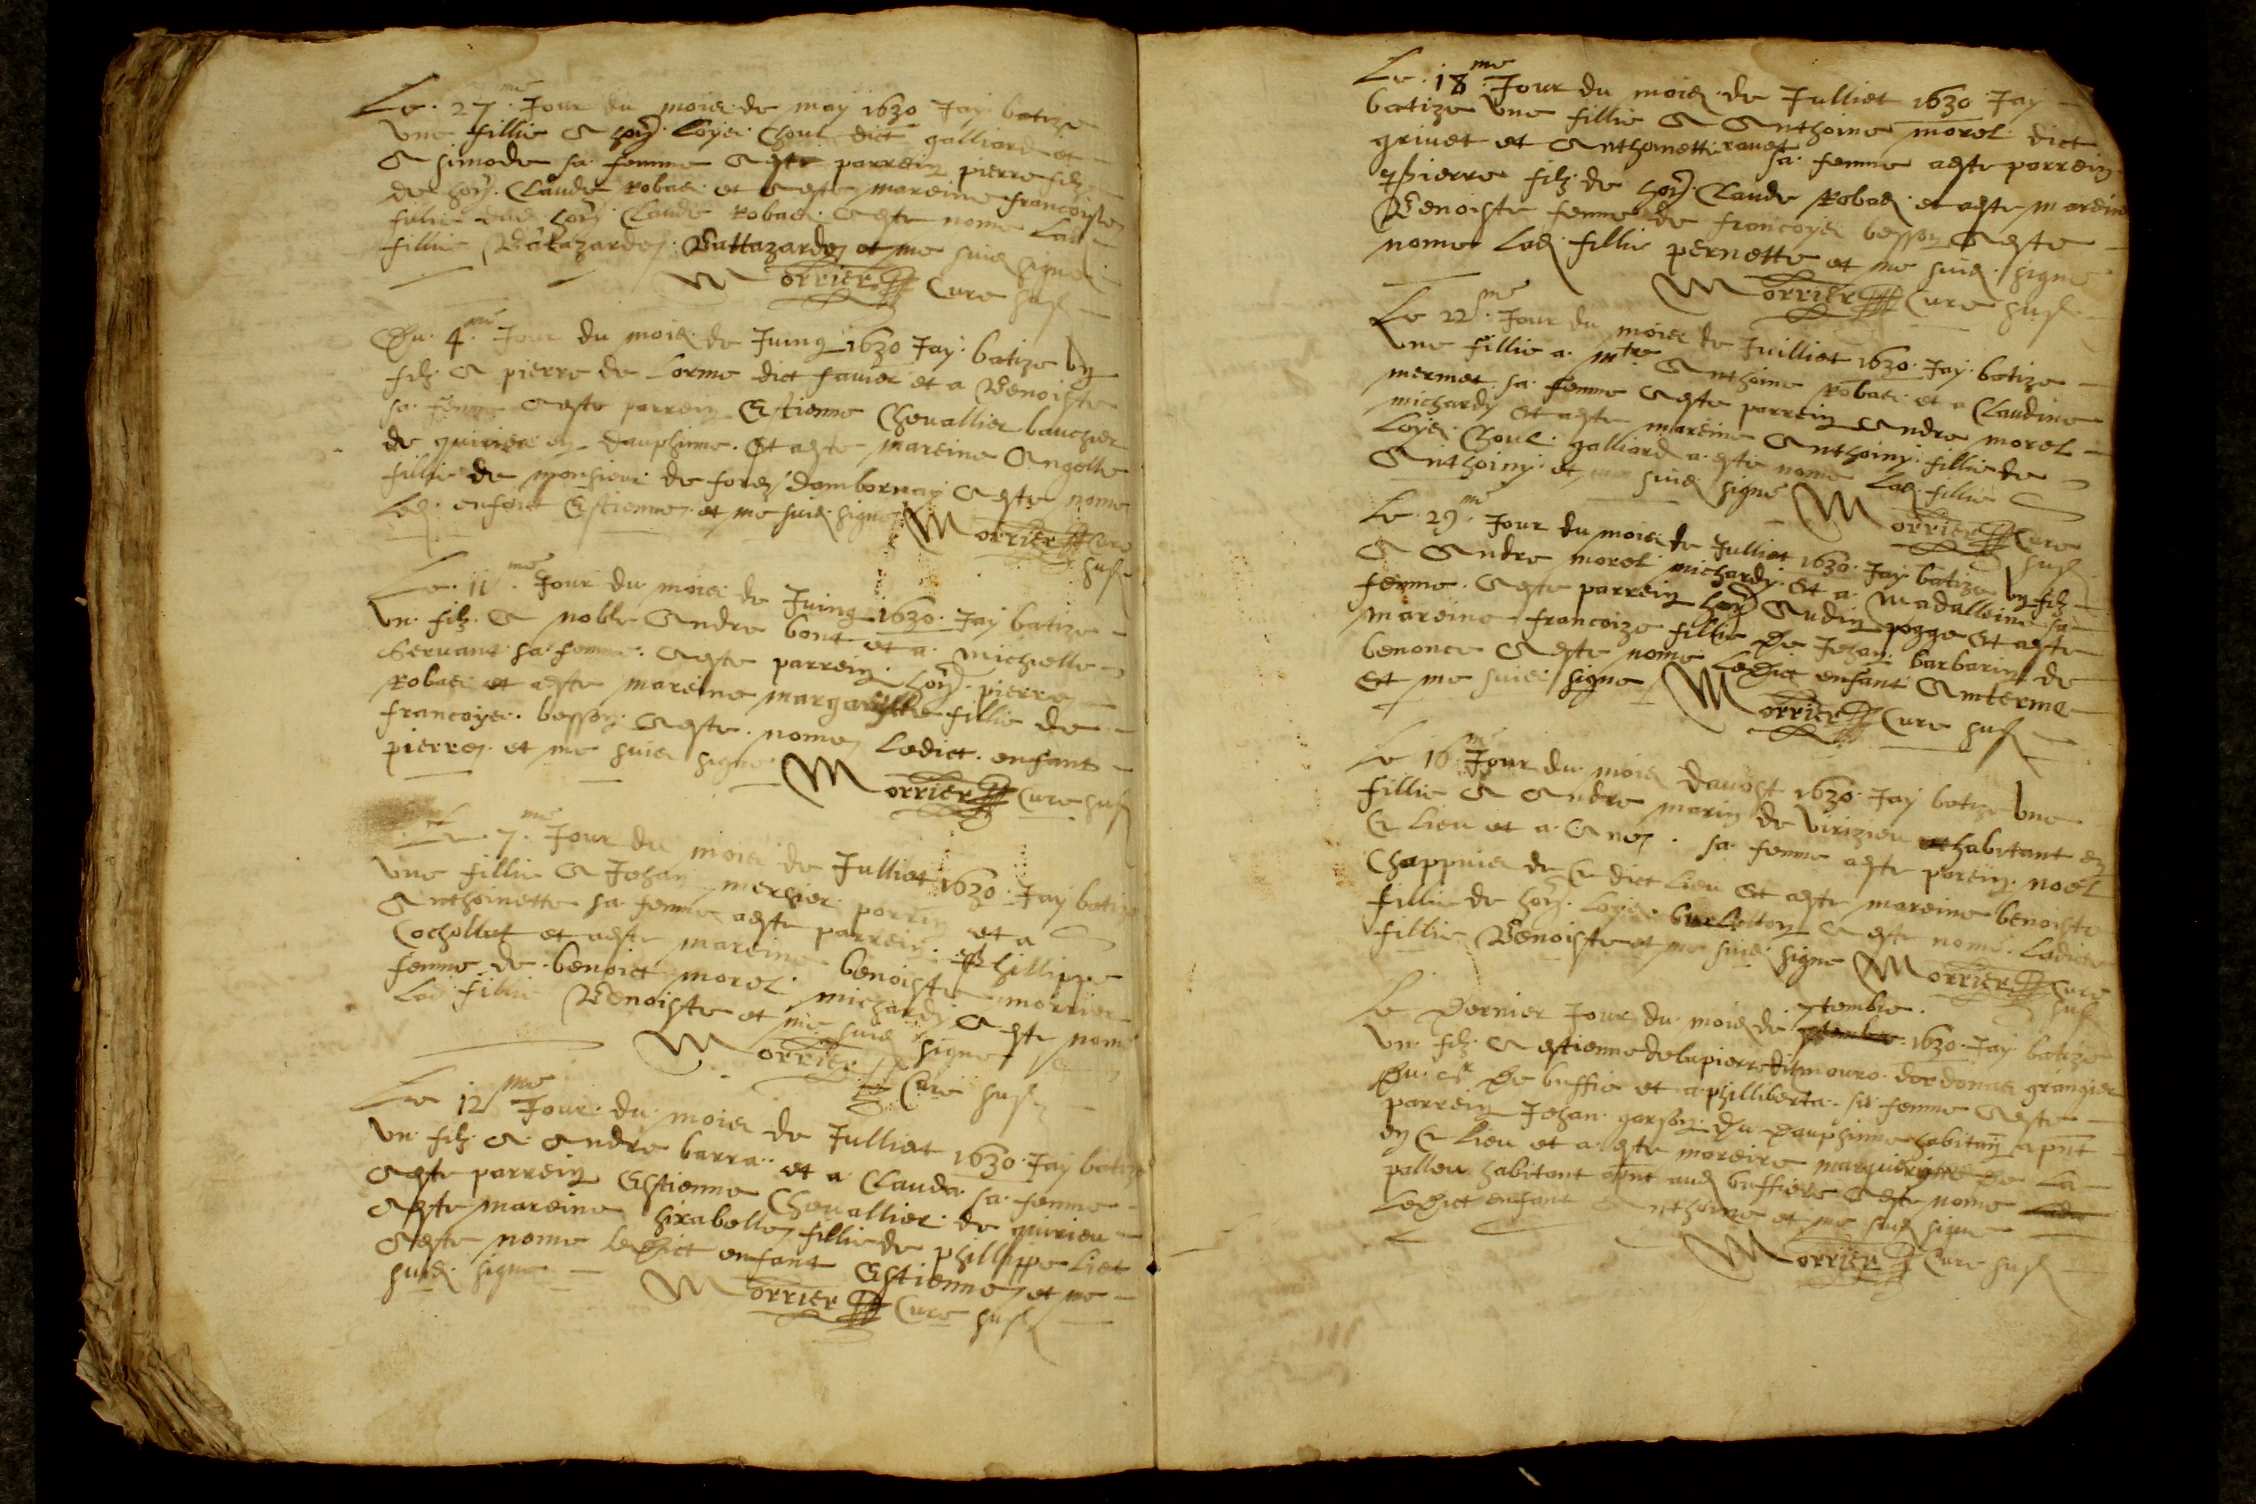 Le 27me Jour du mois de may 1630 Jay batize
une fillie a hoñ. Loyis Choul dict galliard et
a simode sa femme a este parrein pierre filz
de hoñ. Claude Robas et a este mareine françoise
fillie hoñ Claude Robas a este nome Lad
fillie Battazarde et me suis signe
Morrier Cure susd
Du 4me Jour du mois de Juing 1630 Jay batize vn
filz a pierre de Lorme dict favier et a Benoiste
sa femme a este parrein Estienne Chevallier
de quirieu en dauphine. Et a este mareine
fillie de monsieur de a este nome
Led. enfant Estienne et me suis signe Morrier Cure
susd
Le 11me Jour du mois de Juing 1630 Jay batize
Vn filz a noble Andre bont et a michelle
Servant sa femme. a este parrein hoñ. pierre
Robas et a este mareine margueritte fillie de
francoyes bessoñ a este nome Ledict enfant
pierre et me suis signe Morrier Cure susd
Le 7me Jour du mois de Julliet 1630 Jay batize
une fillie a Jehan mercier perrin et a
Anthoinette sa femme a este parrein phillippe
Cochollat et a este mareine benoiste morrier
femme de benoict morel michardy a este nome
Lad fillie Benoiste et me suis signe
Morrier Cure susd
Le 12me Jour du mois de Julliet 1630 Jay batize
Vn filz a Andre barra et a Clauda sa femme
a este parrein Estienne Chevallier de quirieu
a este mareine fillie de phillippe Liet
a este nome Ledict enfant Estienne et me
suis signe Morrier Cure susd
Le 18me Jour du mois de Julliet 1630 Jay
batize Vne fillie a Anthoine morel dict
grivet et Anthoinette ravet sa femme a este parrein
pierre filz de hoñ Claude Robas et a este mareine
Benoiste femme de francoyes bessoñ a este
nome Lad. fillie pernette et me suis signe
Morrier Cure susd
Le 22me Jour du mois de Juilliet 1630 Jay batize
Vne fillie a mtre Anthoine Robas et a Claudine
mermet sa femme a este parrein Andre morel
michardy Et a este mareine Anthoiny fillie de
Loyis Choul galliard a este nome Lad fillie
Anthoiny et me suis signe Morrier Cure
susd
Le 29me Jour du mois de Julliet 1630 Jay batize vn filz
a Andre morel michardy et a Madalleine sa
femme. a este parrein hoñ Audin pogge Et a este
mareine francoize fillie De Jehan barbarin de
benonce a este nome Ledict enfant Amterme
Et me suis signe Morrier Cure susd
Le 16me Jour du mois davost 1630 Jay batize Vne
fillie a Andre marin de virizieu et habitant en
Ce Lieu et a sa femme a este parein noel
Chappuis de Ce dict Lieu Et a este mareine benoiste
fillie de hoñ. Loyis a este nome Ladicte
fillie Benoiste et me suis signe Morrier Cure
susd
Le Dernier Jour du mois de 7tembre 1630 Jay batize
Vn filz a estienne delapierre dit mouro grangier
Du De buffie et a philliberta sa femme a este
parrein Jehan garson Du Dauphine habitant a pnt
en Ce Lieu et a este mareine margueritte De La
pallen habitant a pnt aud buffiere a este nome
Ledict enfant Anthoine et me suis signe
Morrier Cure susd